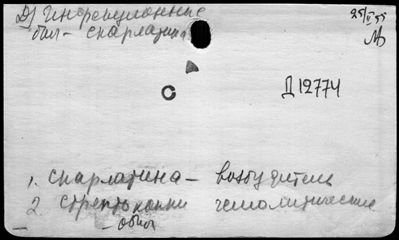 Д) Инфекционные
бол- скарлатина
25/V 55
Д 12774
1. Скарлатина - возбудитель
2. Стрептококки гемолитические
- общ